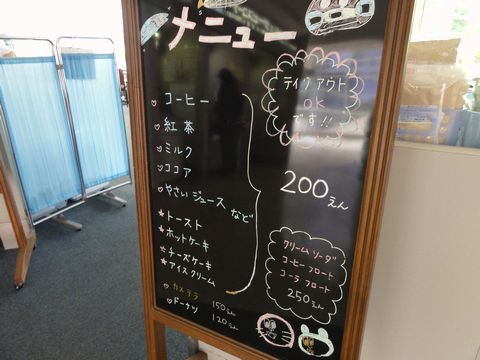 メニュー
テイクアウト
OK
です!!
♡コーヒー
♡紅茶
♡ミルク
♡ココア
♡やさいジュース など
★トースト
★ホットケーキ
★チーズケーキ
★アイスクリーム
200えん
クリームソーダ
コーヒーフロート
コーラフロート
250えん
♡カステラ 150えん
♡ドーナツ 120えん